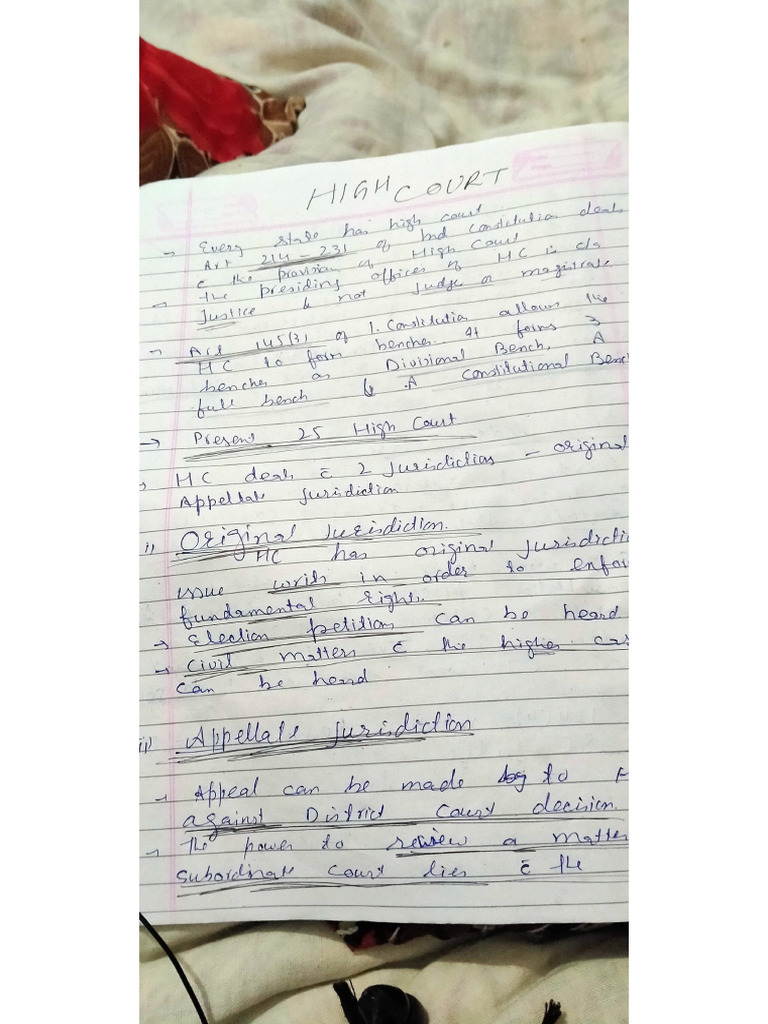 HIGH COURT
→ Every state has high court
Art 214 - 231 of Ind Constitution deals
c̄ the provision of High Court
→ The presiding officer of HC is c/a
Justice & not Judge or magistrate
→ Act 145(3) of I. Constitution allows the
HC to form benches. It forms 3
benches as Divisional Bench, A
full bench & A Constitutional Bench
→ Present 25 High Court
→ HC deals c̄ 2 Jurisdiction - original
Appellate jurisdiction
i) Original Jurisdiction.
HC has original jurisdicti
issue writs in order to enfo
fundamental rights.
→ Election petition can be heard
→ Civil matters c̄ the higher cas
can be heard
ii) Appellate jurisdiction
→ Appeal can be made to H
against District Court decision.
→ The power to review a matter
subordinate court lies c̄ the